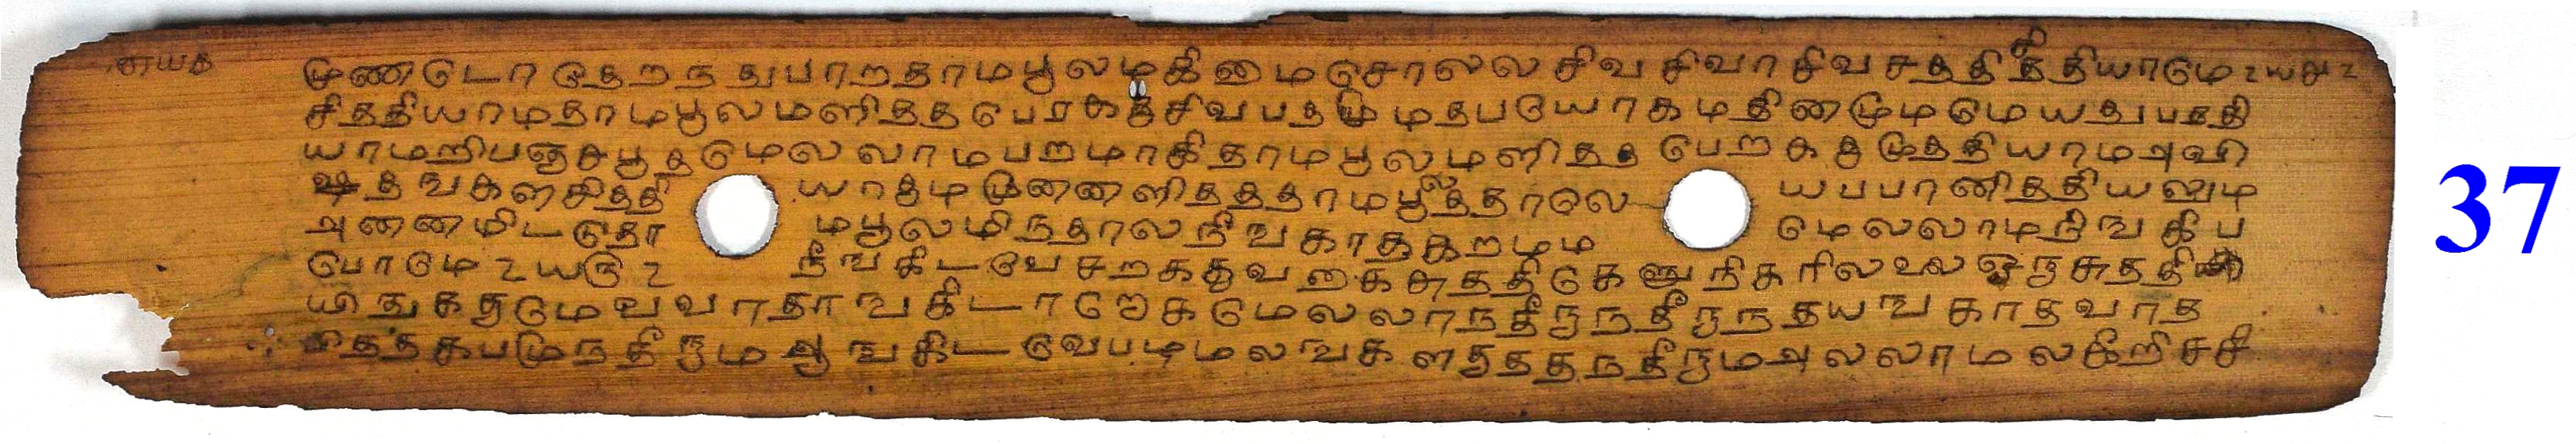 முணடொ தேறநதுபாறதாமபூலமகிமைசொலல சிவ சிவா சிவசததிததியாமே உயசஉ
சிததியாமதாமபூலமளிதத பெரககுசிவபதமுமதபயோகமதினமுமமேயதுபததி
யாமறிபஞசபூதமெலலாமபறமாகிதாமபூலமளிதத பெறககுமுததியாமஅவி
ஷதஙகளசிததி யாகுமமுனனளிதததாமபூலததாலே யபபாணிததியலும
அனனமிடடுதா மபூலமிநதாலநீஙகாதகறமம மெலலாமநிஙகிப
போமே உயரு உ நீஙகிடவேசறககுவகைசுததிகேளுநிகரிலவலஓருசுததி
யிருககுமேவவாதாஙகிடாரோகமெலலாநதீருநதீருநதயஙகாதவாத
பிததகபமுநதீருமஆஙகிடவேபழமலஙகளததநதீருமஅலலாமலகீறிசசி
37